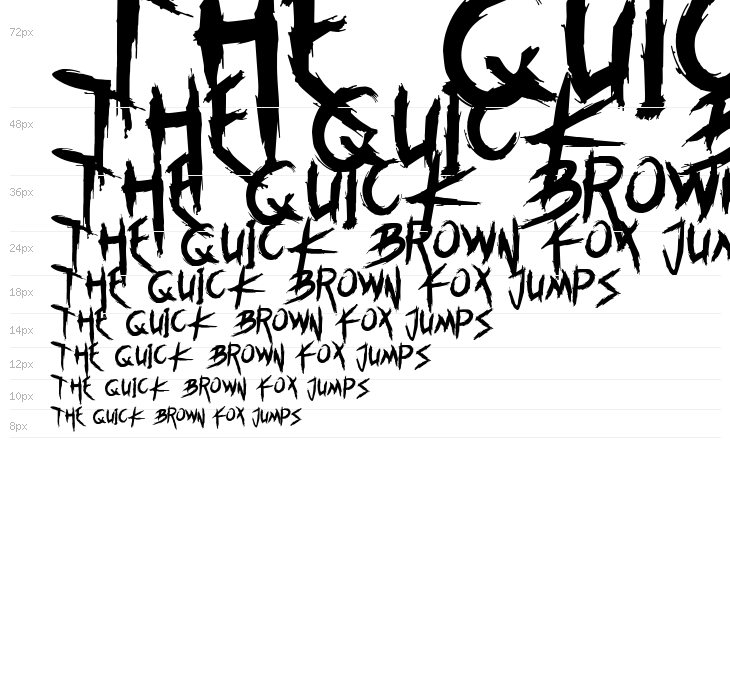 72px THE QUIC
48px THE QUICK B
36px THE QUICK BROWN
24px THE QUICK BROWN FOX JUM
18px THE QUICK BROWN FOX JUMPS
14px THE QUICK BROWN FOX JUMPS
12px THE QUICK BROWN FOX JUMPS
10px THE QUICK BROWN FOX JUMPS
8px THE QUICK BROWN FOX JUMPS